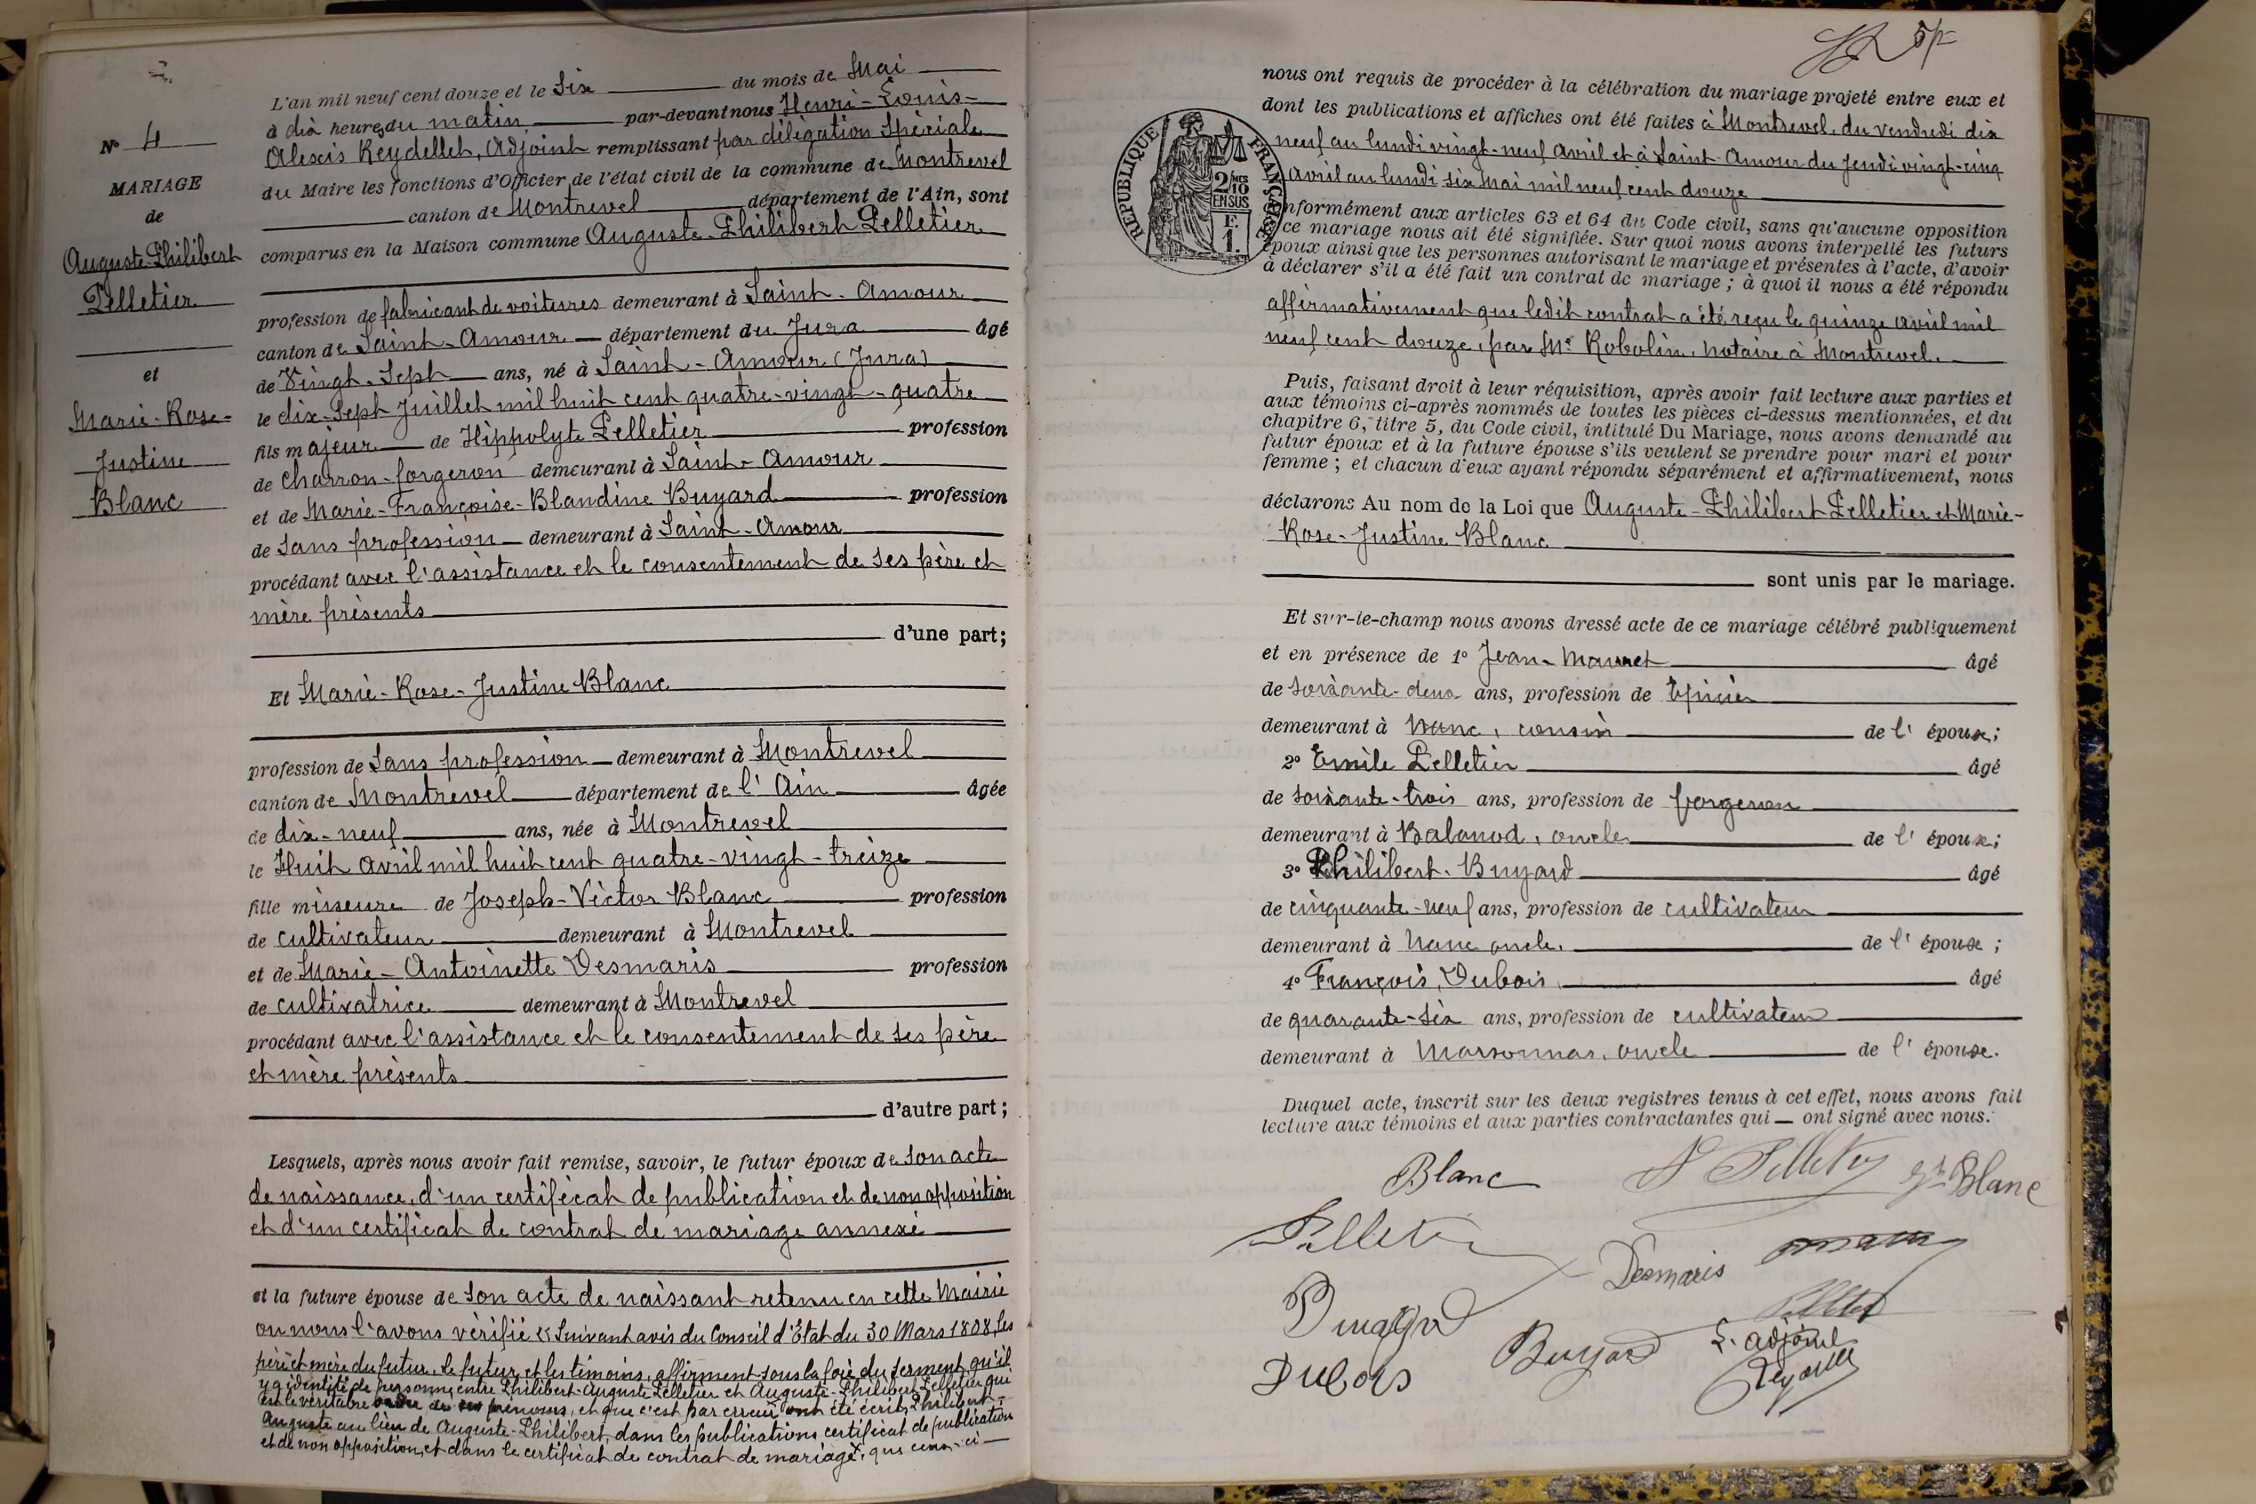 L'an mil neuf cent douze et le Six du mois de Mai
à dix heures du matin par-devant nous Henri-Louis-
Alexis Reydellet, Adjoint remplissant par délégation Spéciale
du Maire les fonctions d'Officier de l'état civil de la commune de Montrevel
canton de Montrevel département de l'Ain, sont
comparus en la Maison commune Auguste-Philibert Pelletier
N° 4
MARIAGE
de
Auguste-Philibert
Pelletier
et
Marie-Rose-
Justine
Blanc
profession de fabricant de voitures demeurant à Saint-Amour
canton de Saint-Amour département du Jura âgé
de Vingt-Sept ans, né à Saint-Amour (Jura)
le dix-Sept Juillet mil huit cent quatre-vingt-quatre
fils majeur de Hippolyte Pelletier profession
de Charron-forgeron demeurant à Saint-Amour
et de Marie-Françoise-Blandine Buyard profession
de Sans profession demeurant à Saint-Amour
procédant avec l'assistance et le consentement de ses père et
mère présents
d'une part;
Et Marie-Rose-Justine Blanc
profession de Sans profession demeurant à Montrevel
canton de Montrevel département de l'Ain âgée
de dix-neuf ans, née à Montrevel
le Huit Avril mil huit cent quatre-vingt-treize
fille mineure de Joseph-Victor Blanc profession
de cultivateur demeurant à Montrevel
et de Marie-Antoinette Desmaris profession
de cultivatrice demeurant à Montrevel
procédant avec l'assistance et le consentement de ses père
et mère présents
d'autre part;
Lesquels, après nous avoir fait remise, savoir, le futur époux de Son acte
de naissance, d'un certificat de publication et de non opposition
et d'un certificat de contrat de mariage annexé
et la future épouse de Son acte de naissant retenu en cette Mairie
ou nous l'avons vérifié Suivant avis du Conseil d'Etat du 30 Mars 1808, les
père et mère du futur, le futur, et les témoins, affirment sous la foie du serment qu'il
y a identité de personne entre Philibert-Auguste Pelletier et Auguste-Philibert Pelletier qui
est le véritable ordre de ses prénoms, et que c'est par erreur ont été écrit, Philibert-
Auguste au lieu de Auguste-Philibert, dans les publications certificat de publication
et de non opposition, et dans le certificat de contrat de mariage, que ceux-ci
nous ont requis de procéder à la célébration du mariage projeté entre eux et
dont les publications et affiches ont été faites à Montrevel, du vendredi dix
neuf au lundi vingt-neuf avril et à Saint-Amour du Jeudi vingt-cinq
Avril au lundi six Mai mil neuf cent douze
RÉPUBLIQUE FRANÇAISE
2/10 EN SUS
F.
1.
nformément aux articles 63 et 64 du Code civil, sans qu'aucune opposition
ce mariage nous ait été signifiée. Sur quoi nous avons interpellé les futurs
époux ainsi que les personnes autorisant le mariage et présentes à l'acte, d'avoir
à déclarer s'il a été fait un contrat de mariage ; à quoi il nous a été répondu
affirmativement que ledit contrat a été reçu le quinze avril mil
neuf cent douze, par Me Robolin, notaire à Montrevel.
Puis, faisant droit à leur réquisition, après avoir fait lecture aux parties et
aux témoins ci-après nommés de toutes les pièces ci-dessus mentionnées, et du
chapitre 6, titre 5, du Code civil, intitulé Du Mariage, nous avons demandé au
futur époux et à la future épouse s'ils veulent se prendre pour mari et pour
femme ; et chacun d'eux ayant répondu séparément et affirmativement, nous
déclarons Au nom de la Loi que Auguste-Philibert Pelletier et Marie-
Rose-Justine Blanc
sont unis par le mariage.
Et sur-le-champ nous avons dressé acte de ce mariage célébré publiquement
et en présence de 1° Jean Mauret âgé
de soixante-deux ans, profession de Epicier
demeurant à Nanc, cousin de l' époux;
2° Emile Pelletier âgé
de soixante-trois ans, profession de forgeron
demeurant à Balanod, oncle de l' époux;
3° Philibert Buyard âgé
de cinquante-neuf ans, profession de cultivateur
demeurant à Nanc oncle, de l' époux ;
4° François, Dubois, âgé
de quarante-six ans, profession de cultivateur
demeurant à Marsonnas, oncle de l' épouse.
Duquel acte, inscrit sur les deux registres tenus à cet effet, nous avons fait
lecture aux témoins et aux parties contractantes qui ont signé avec nous.
Blanc Pelletier Blanc
Pelletier Desmaris
Buyard Pelletier
Dubois Buyard L'adjoint